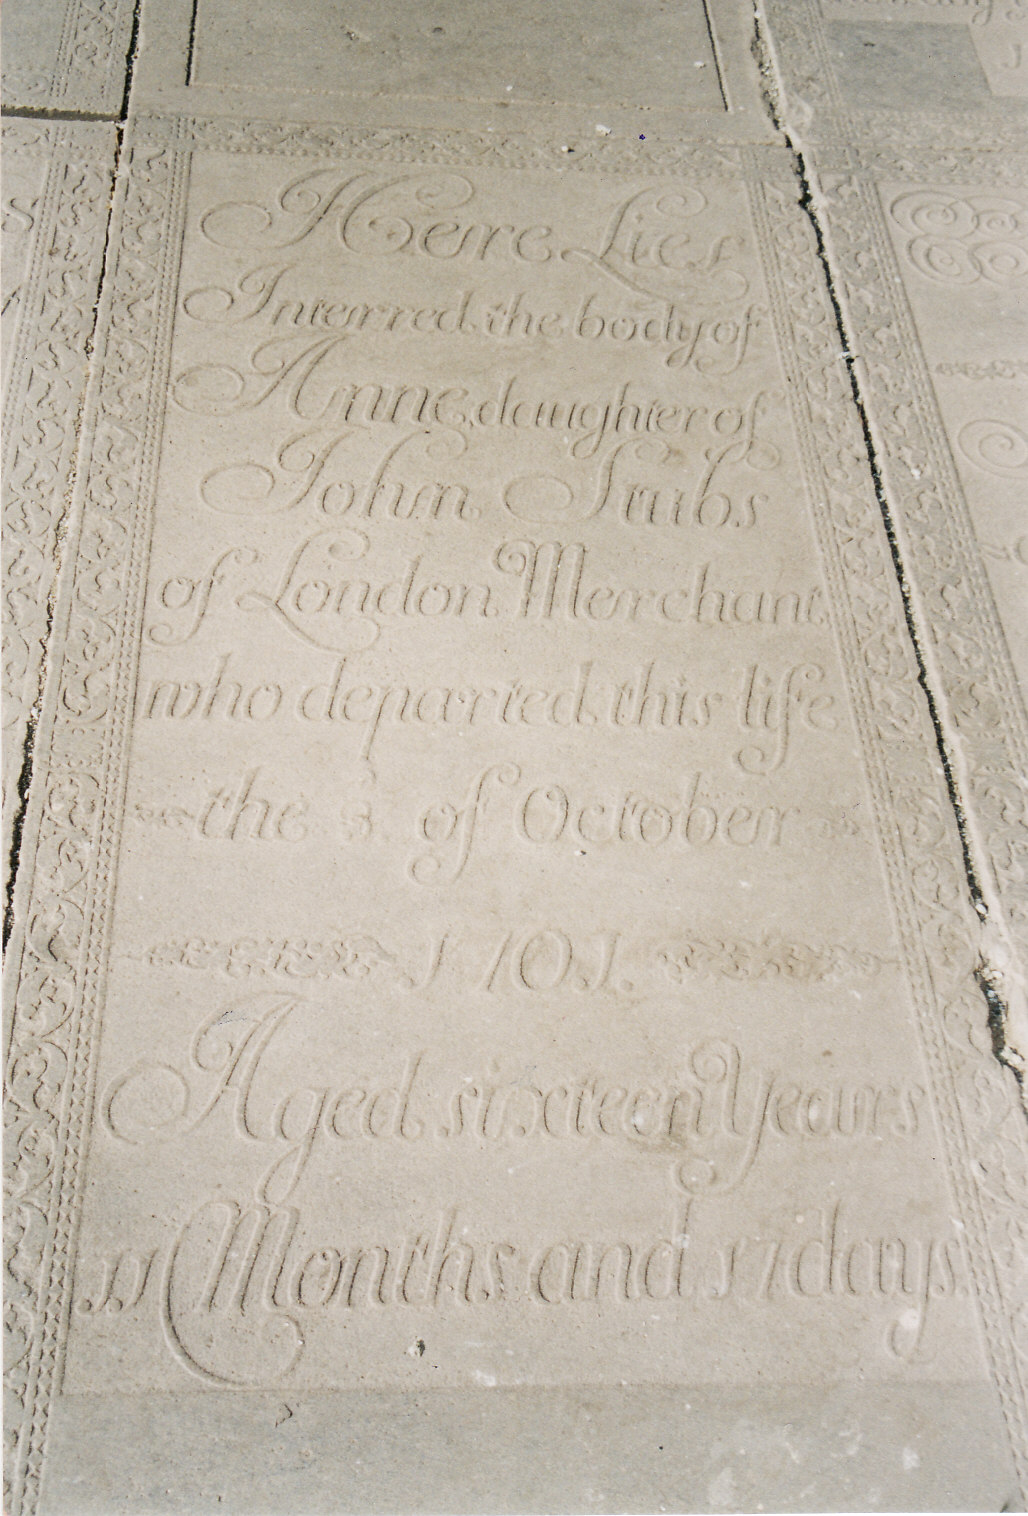 Here Lies
Interred the body of
Anne, daughter of
John Stubs
of London Merchant
who departed this life
the of October
1701.
Aged sixteen Years
11 Months and 17 days